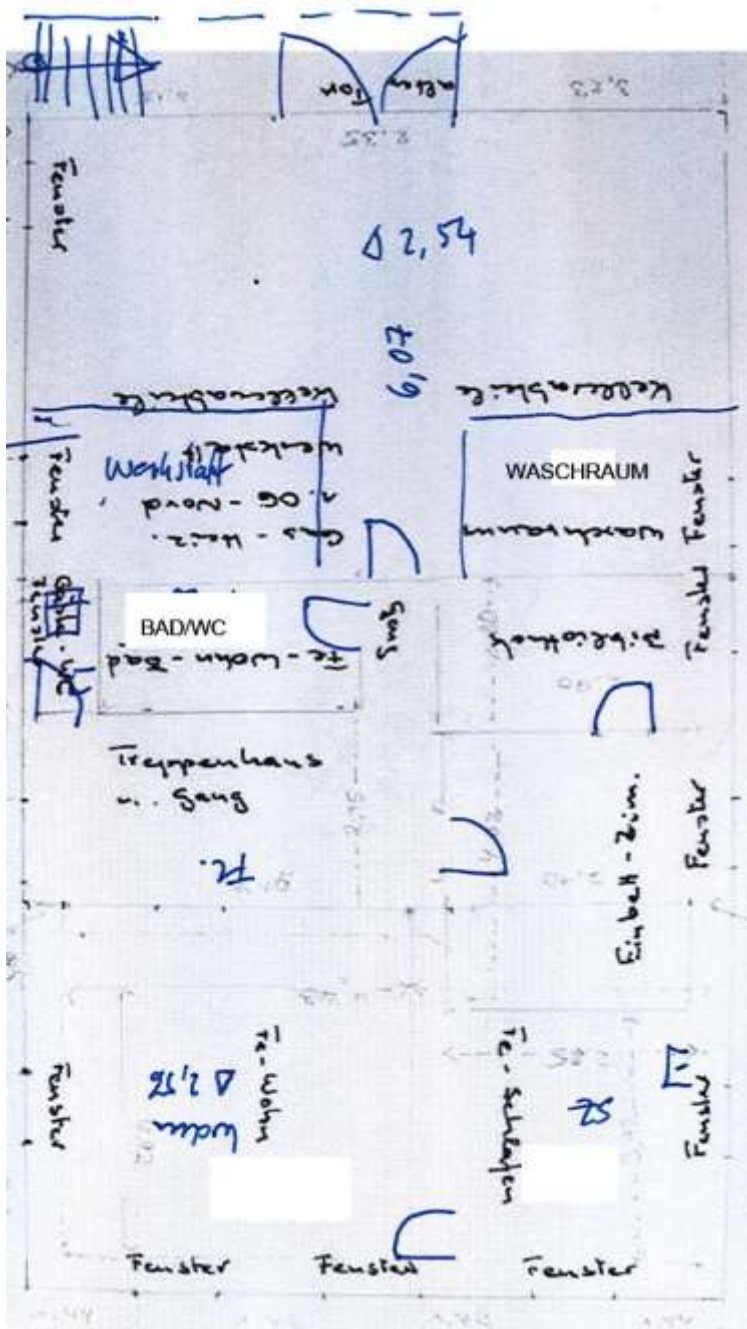 altes
Tor
3,23
2.35
Fenster
Δ 2,54
6,07
Kellerabteile
Kellerabteile
Fenster
Werkstatt
Werkstatt
Gas - Heiz.
WASCHRAUM
Waschraum
Fenster
Fenster
BAD/WC
Fe-Wohn-Bad
Gang
Bibliothek
Treppenhaus
u. Gang
Fl.
Einbett-Zim.
Fenster
Fenster
Fe-Wohn
Δ 2,56
Fe-Schlafen
SZ
Fenster
Fenster
Fenster
Fenster